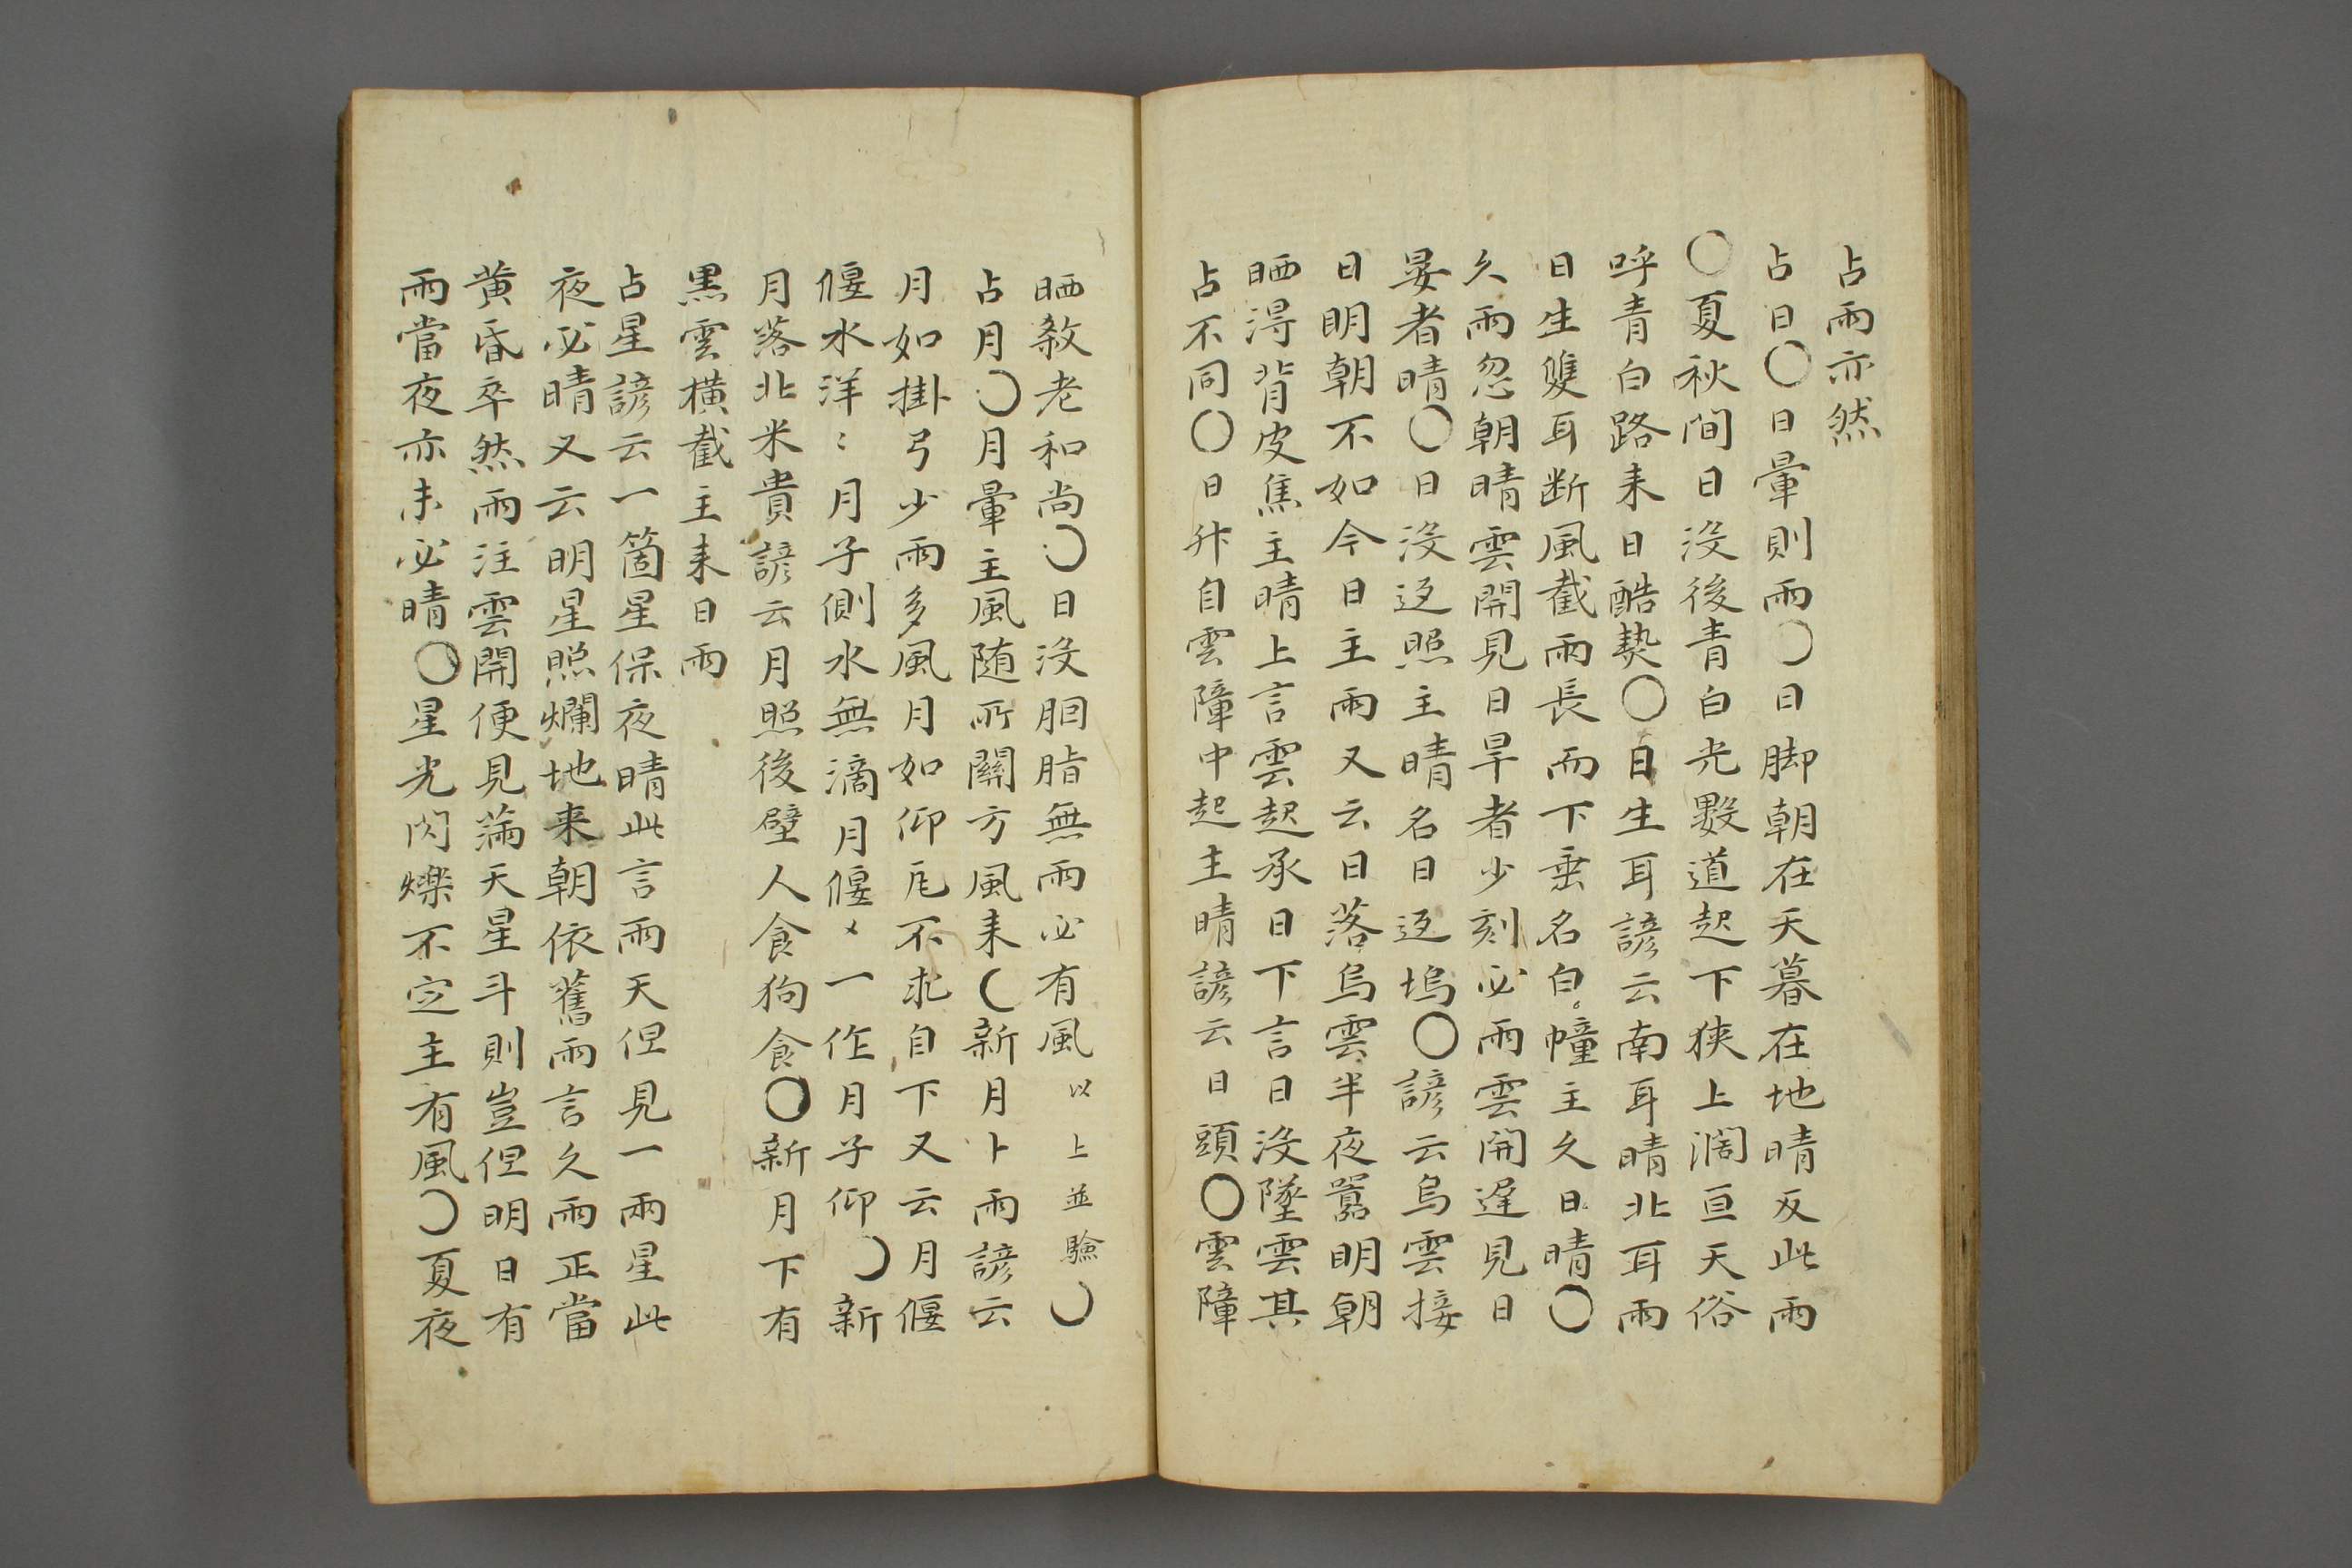 占雨亦然
占日〇日暈則雨〇日脚朝在天暮在地晴反此雨
〇夏秋間日没後青白光數道起下狹上濶亘天俗
呼青白路来日酷𤍠〇日生耳諺云南耳晴北耳雨
日生雙耳断風截雨長而下垂名白幢主久日晴〇
久雨忽朝晴雲開見日早者少刻必雨雲開遅見日
晏者晴〇日没返照主晴名日返塢〇諺云烏雲接
日明朝不如今日主雨又云日落烏雲半夜嚣明朝
晒淂背皮焦主晴上言雲起承日下言日没墜雲其
占不同〇日升自雲障中起主晴諺云日頭〇雲障
晒殺老和尚〇日没胭脂無雨必有風以上並驗〇
占月〇月暈主風随所闗方風来〇新月卜雨諺云
月如掛弓少雨多風月如仰瓦不求自下又云月偃
偃水洋〻月子側水無滴月偃〻一作月子仰〇新
月落北米貴諺云月照後壁人食狗食〇新月下有
黒雲横截主来日雨
占星諺云一箇星保夜晴此言雨天但見一兩星此
夜必晴又云明星照爛地来朝依舊雨言久雨正當
黄昏卒然雨注雲開便見滿天星斗則豈但明日有
雨當夜亦未必晴〇星光閃爍不定主有風〇夏夜